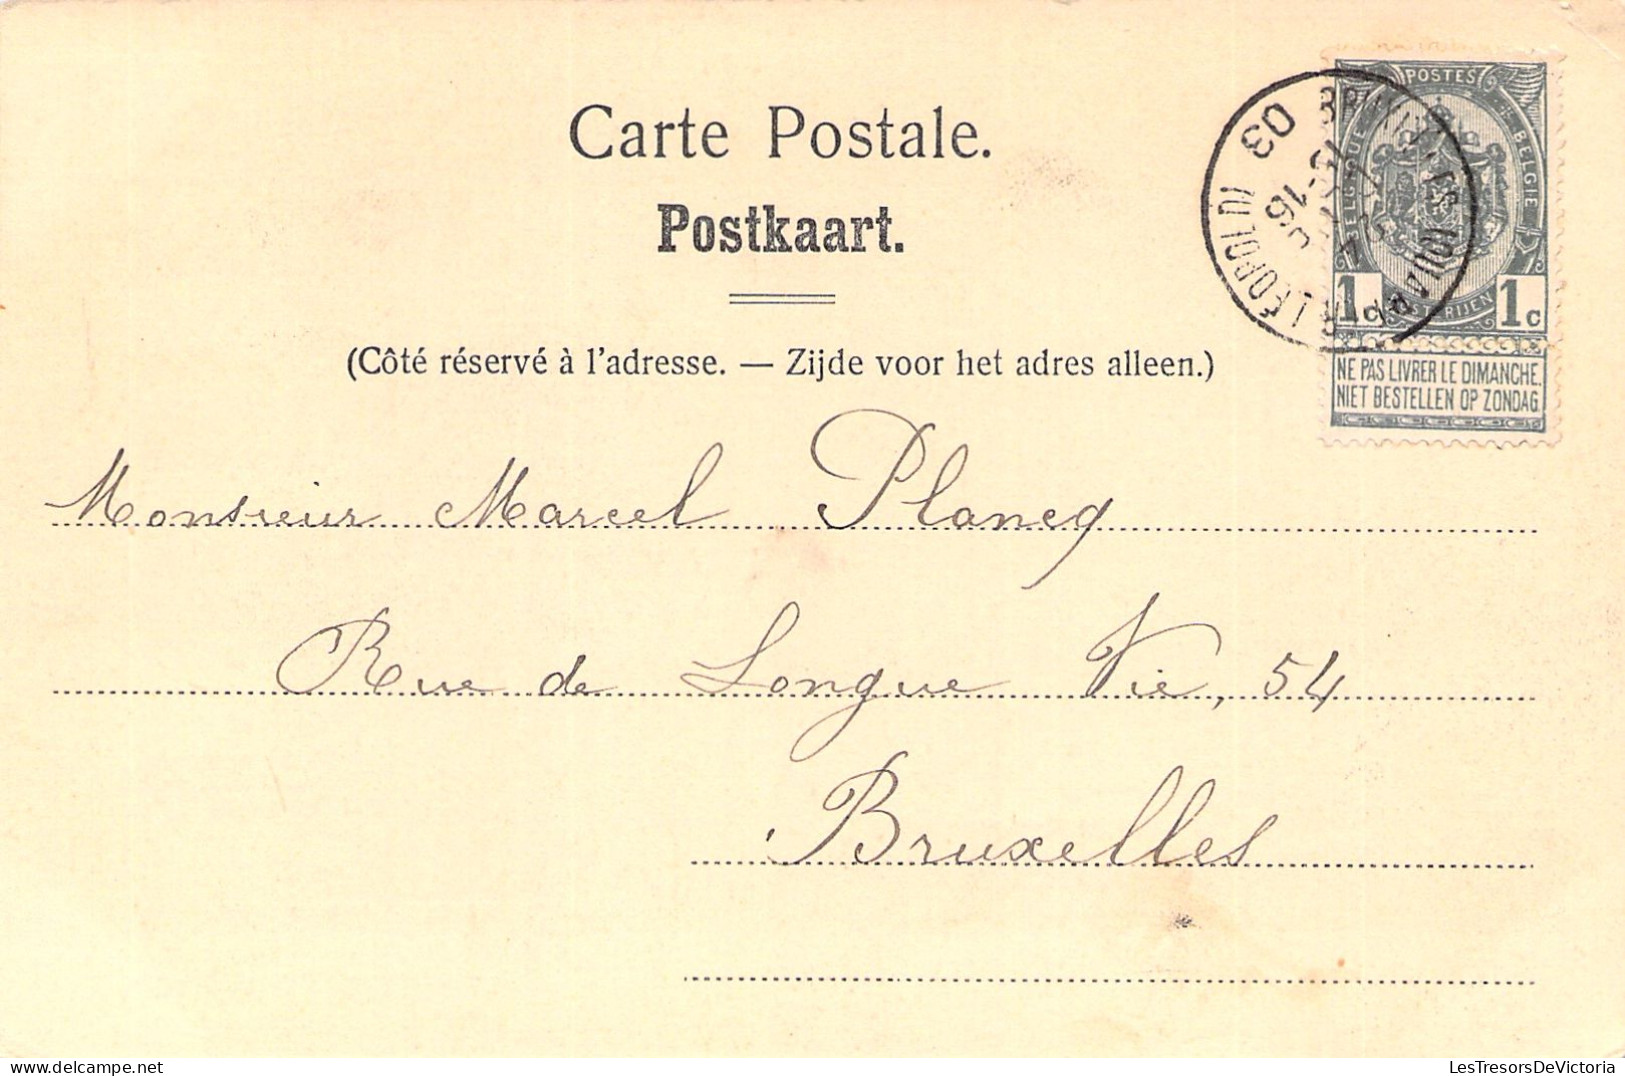 Carte Postale.
Postkaart.
(Côté réservé à l'adresse. — Zijde voor het adres alleen.)
POSTES
BELGIQUE
BELGIË
1c 1c
NE PAS LIVRER LE DIMANCHE.
NIET BESTELLEN OP ZONDAG
03
Monsieur Marcel Plancq
Rue de Longue Vie, 54
Bruxelles
LesTresorsDeVictoria